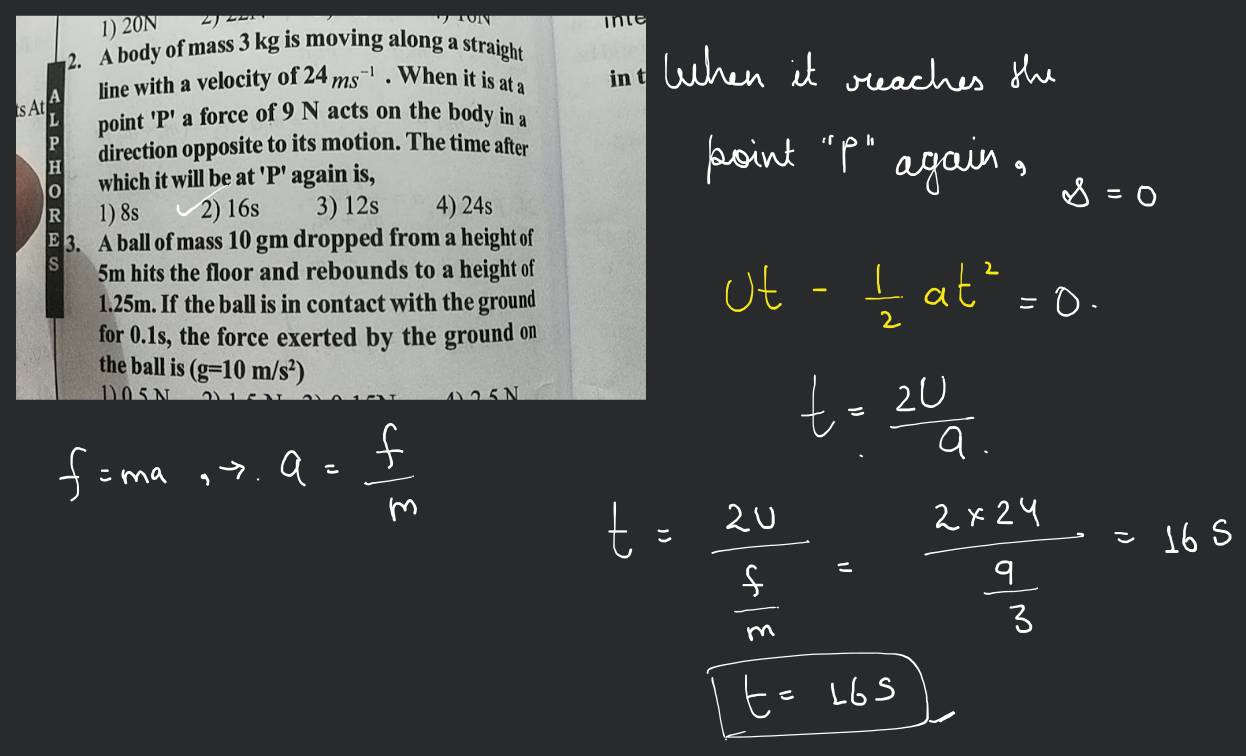 1) 20N
2. A body of mass 3 kg is moving along a straight
line with a velocity of 24 ms⁻¹ . When it is at a
point 'P' a force of 9 N acts on the body in a
direction opposite to its motion. The time after
which it will be at 'P' again is,
1) 8s 2) 16s 3) 12s 4) 24s
3. A ball of mass 10 gm dropped from a height of
5m hits the floor and rebounds to a height of
1.25m. If the ball is in contact with the ground
for 0.1s, the force exerted by the ground on
the ball is (g=10 m/s²)
ts At
ALPHORES
in t
When it reaches the
point "P" again,
s = 0
Ut - 1/2 at² = 0.
t = 2U/a.
f = ma , →. a = f/m
t = 2U/(f/m) = (2×24)/(9/3) = 16 S
t = 16 S